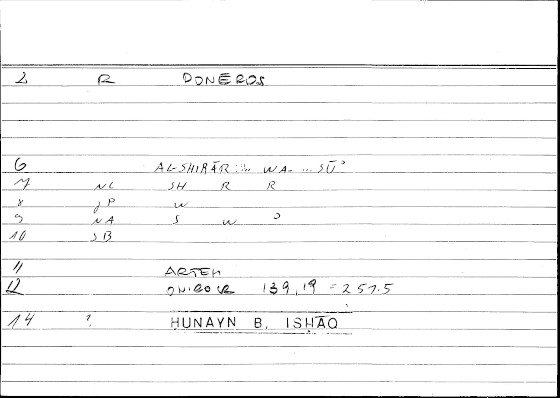 2 R PONEROS
6 AL-SHIRĀR ... WA- ... SŪʾ
7 NC SH R R
8 JP W
9 NA S W ʾ
10 SB
11 ARTEM
12 139,19 = 257.5
14 ? ḤUNAYN B. ISḤĀQ